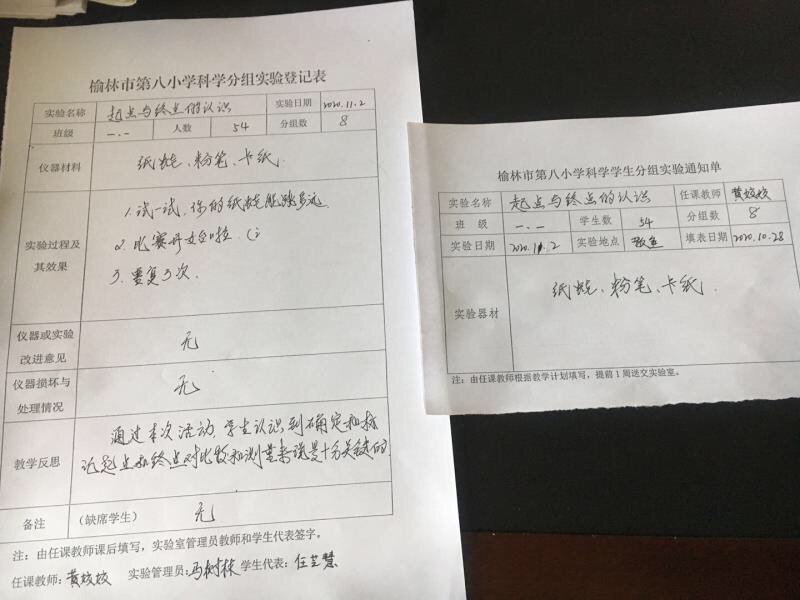 榆林市第八小学科学分组实验登记表
实验名称 起点与终点的认识 实验日期 2020.11.2
班级 一.一 人数 54 分组数 8
仪器材料 纸蛙、粉笔、卡纸.
实验过程及其效果
1.试一试,你的纸蛙能跳多远
2.比赛开始啦.
3.重复3次.
仪器或实验改进意见 无
仪器损坏与处理情况 无
教学反思
通过本次活动,学生认识到确定和标
记起点和终点对比较和测量来说是十分关键的
备注 (缺席学生) 无
注:由任课教师课后填写,实验室管理员教师和学生代表签字。
任课教师:黄姣姣 实验管理员:马树林 学生代表:任芷慧
榆林市第八小学科学学生分组实验通知单
实验名称 起点与终点的认识 任课教师 黄姣姣
班 级 一.一 学生数 54 分组数 8
实验日期 2020.11.2 实验地点 教室 填表日期 2020.10.28
实验器材 纸蛙、粉笔、卡纸.
注:由任课教师根据教学计划填写,提前1周送交实验室。